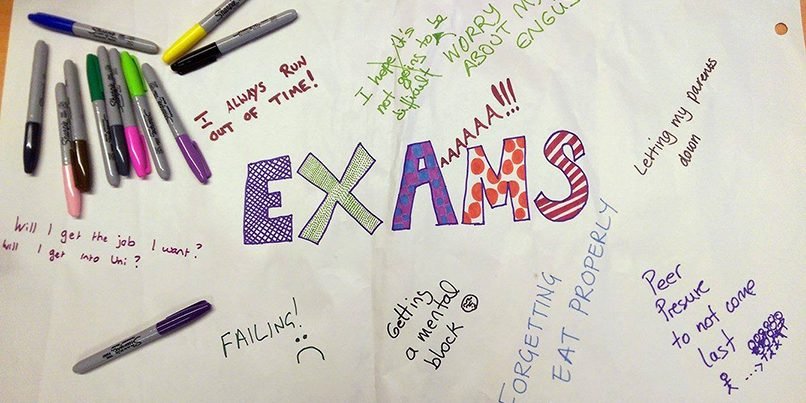 I ALWAYS RUN
OUT OF TIME!
I hope it's
not going to be
difficult
WORRY
ABOUT MY
ENGLIS
AAAAAA!!!
EXAMS
Letting my parents
down
Will I get the job I want?
Will I get into Uni?
FAILING!
Getting
a mental
block
FORGETTING
EAT PROPERLY
Peer
Presure
to not come
last
Sharpie